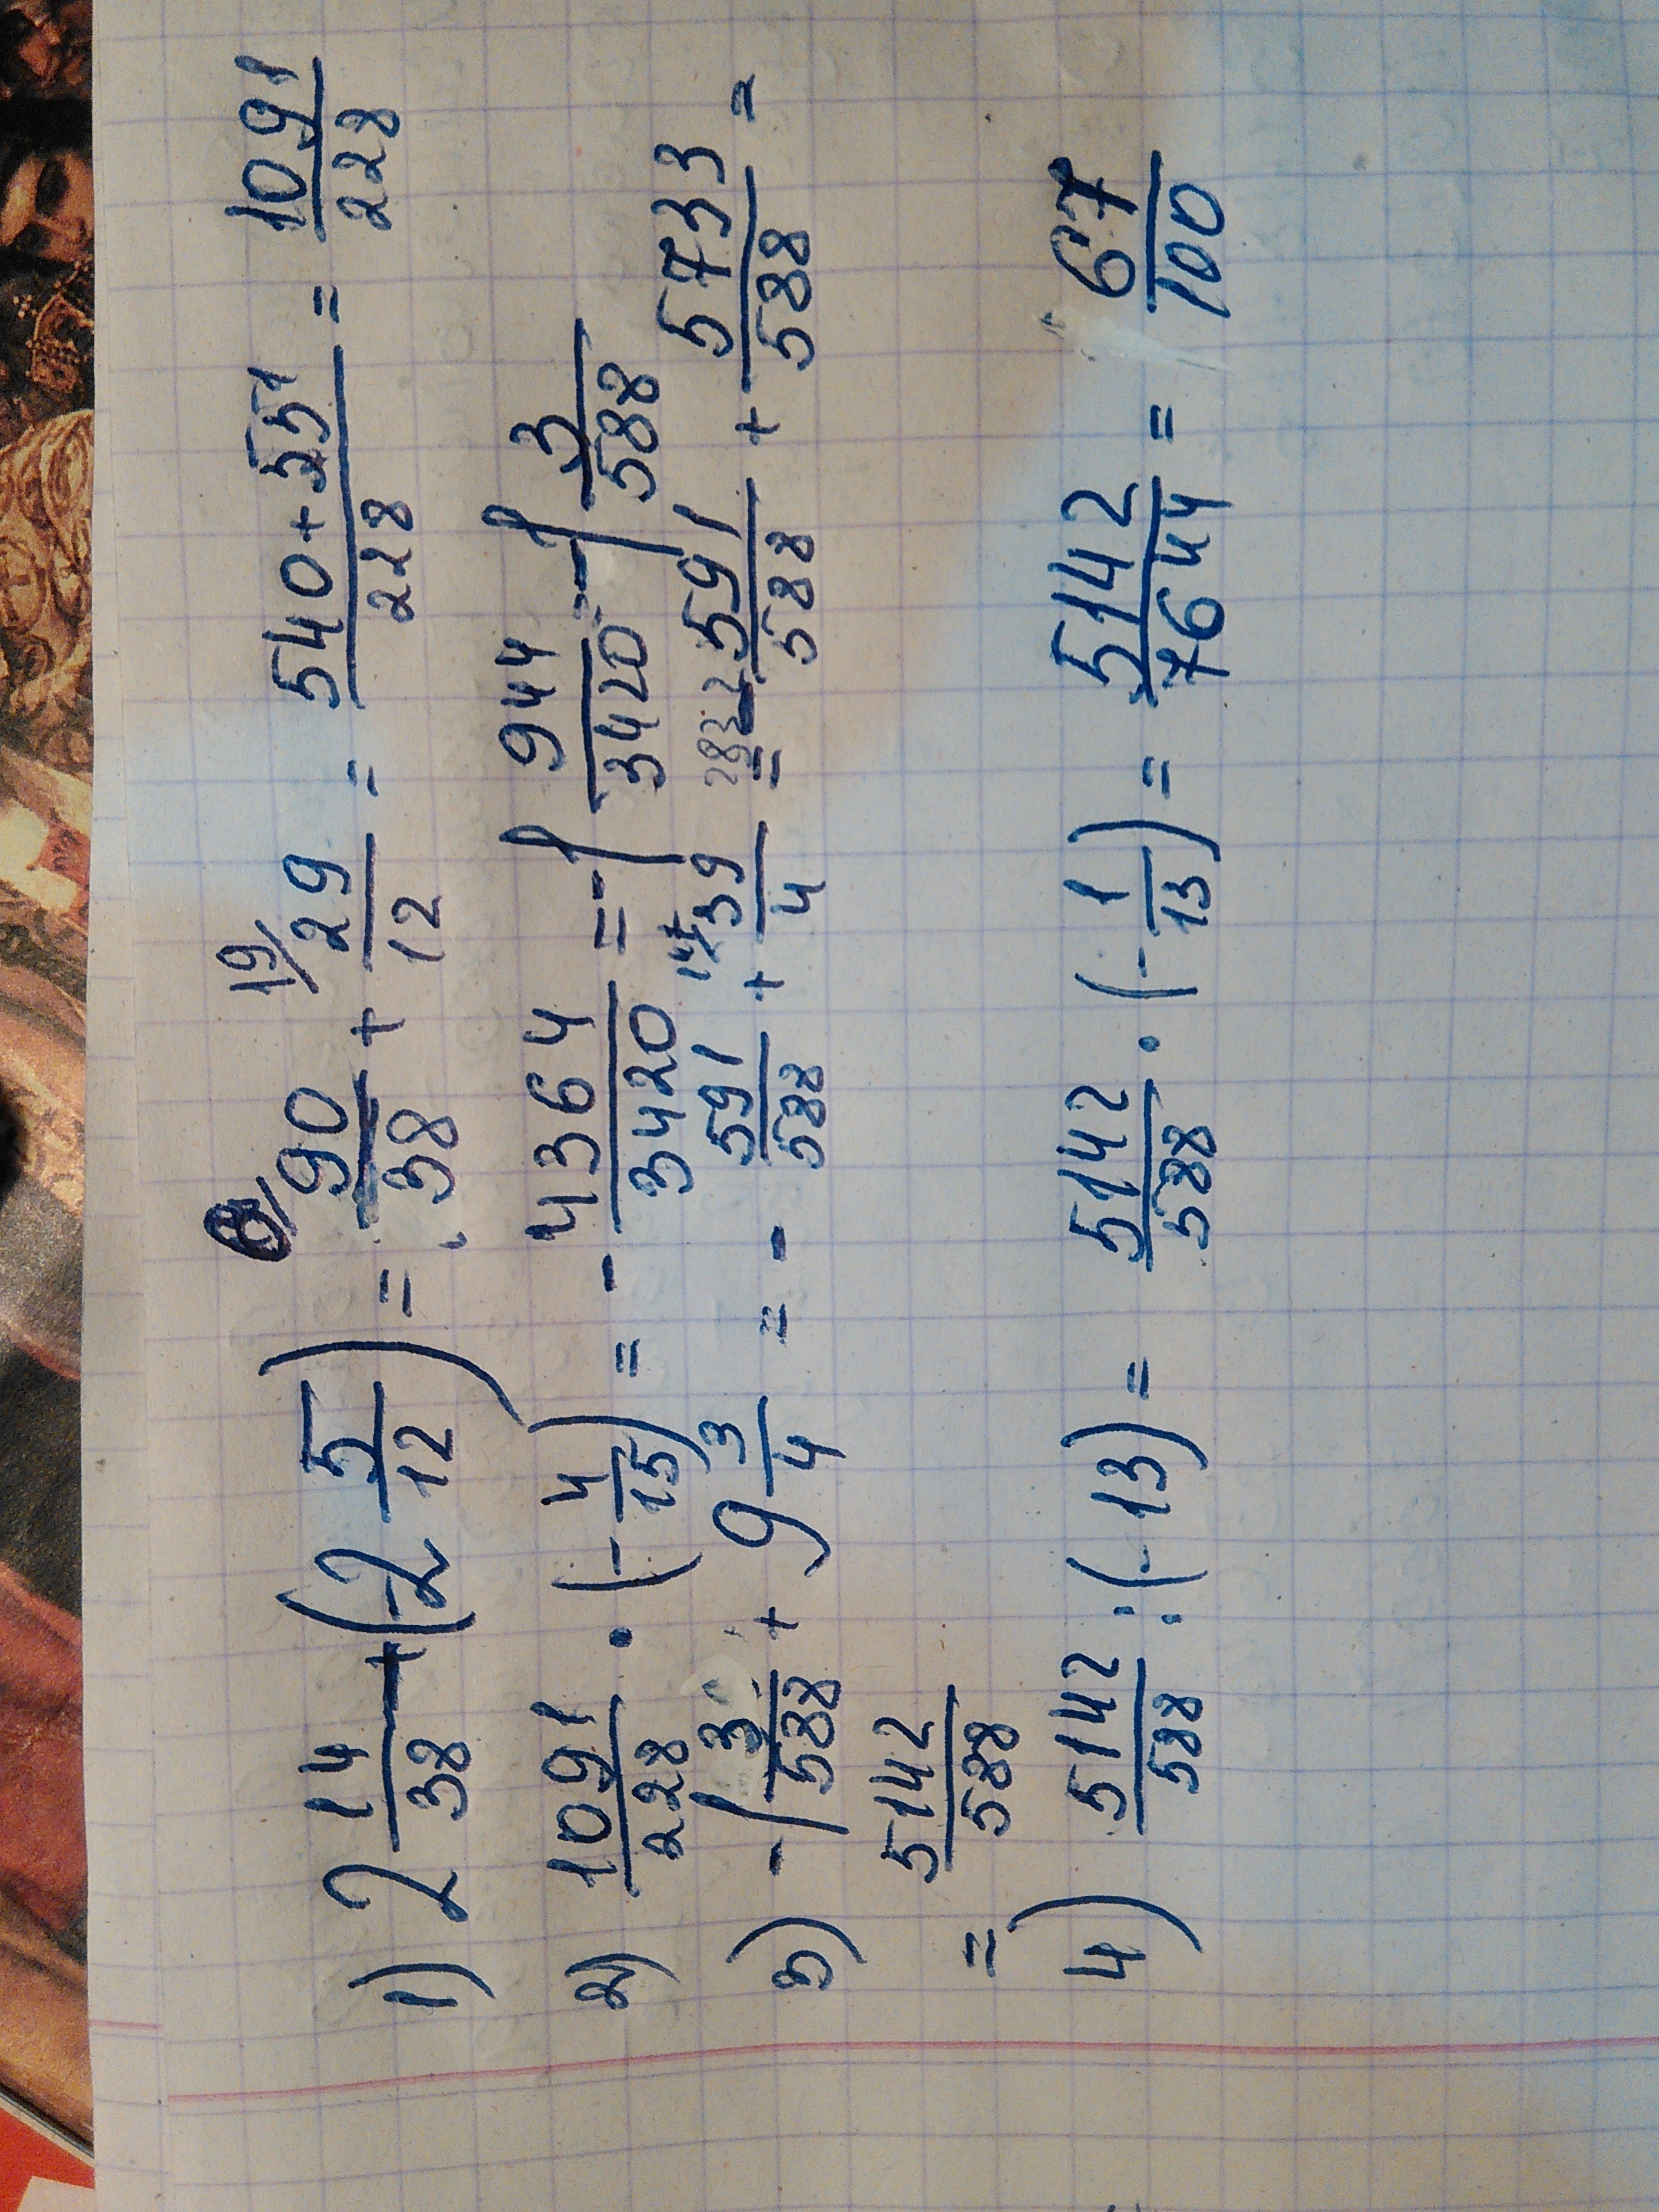 1) 2 14/38 + (2 5/12) = 6/ 90/38 + 19/ 29/12 = 540+551/228 = 1091/228
2) 1091/228 · (-4/15) = - 4364/3420 = -1 944/3420 = -1 3/588
3) -1 3/588 + 9 3/4 = - 591/588 + 147/ 39/4 = 591/588 + 5733/588 =
= 5142/588
4) 5142/588 : (-13) = 5142/588 · (-1/13) = 5142/7644 = 67/100